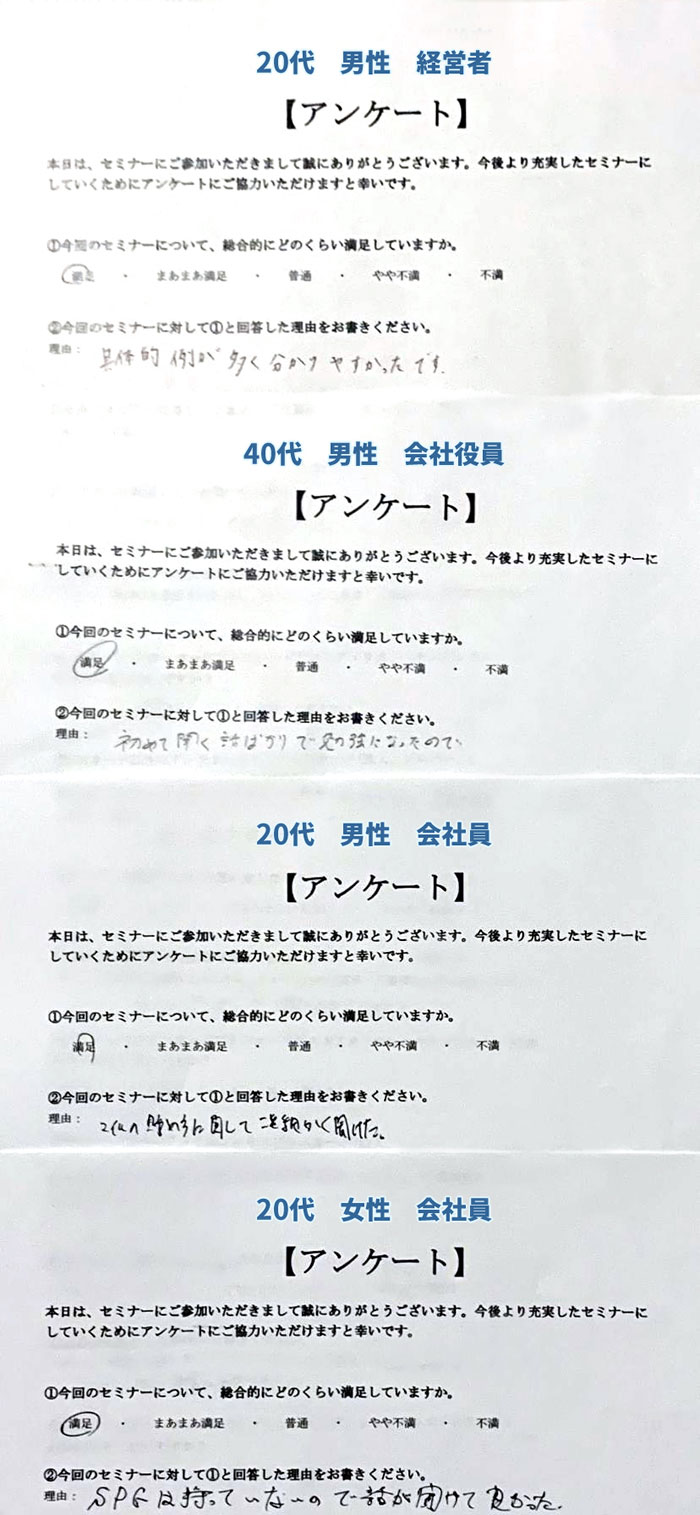 20代　男性　経営者
【アンケート】
本日は、セミナーにご参加いただきまして誠にありがとうございます。今後より充実したセミナーに
していくためにアンケートにご協力いただけますと幸いです。
①今回のセミナーについて、総合的にどのくらい満足していますか。
満足　・　まあまあ満足　・　普通　・　やや不満　・　不満
②今回のセミナーに対して①と回答した理由をお書きください。
理由：　具体的例が多く分かりやすかったです.
40代　男性　会社役員
【アンケート】
本日は、セミナーにご参加いただきまして誠にありがとうございます。今後より充実したセミナーに
していくためにアンケートにご協力いただけますと幸いです。
①今回のセミナーについて、総合的にどのくらい満足していますか。
満足　・　まあまあ満足　・　普通　・　やや不満　・　不満
②今回のセミナーに対して①と回答した理由をお書きください。
理由：　初めて聞く話ばかりで勉強になったので
20代　男性　会社員
【アンケート】
本日は、セミナーにご参加いただきまして誠にありがとうございます。今後より充実したセミナーに
していくためにアンケートにご協力いただけますと幸いです。
①今回のセミナーについて、総合的にどのくらい満足していますか。
満足　・　まあまあ満足　・　普通　・　やや不満　・　不満
②今回のセミナーに対して①と回答した理由をお書きください。
理由：　の貯め方に関して 細かく聞けた。
20代　女性　会社員
【アンケート】
本日は、セミナーにご参加いただきまして誠にありがとうございます。今後より充実したセミナーに
していくためにアンケートにご協力いただけますと幸いです。
①今回のセミナーについて、総合的にどのくらい満足していますか。
満足　・　まあまあ満足　・　普通　・　やや不満　・　不満
②今回のセミナーに対して①と回答した理由をお書きください。
理由：　SPGは持っていないので話が聞けて良かった.